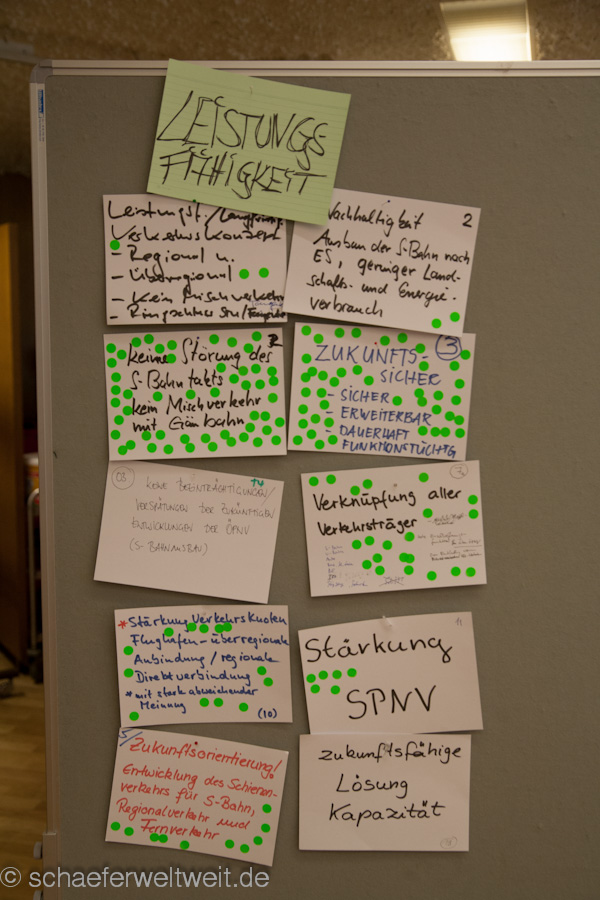 LEISTUNGS
FÄHIGKEIT
Leistungsf./Langfrist.
Verkehrskonzept
- Regional u.
- Überregional
- Kein Mischverkehr
Nachhaltigkeit 2
Ausbau der S-Bahn nach
ES, geringer Land-
schafts- und Energie-
verbrauch
keine Störung des 2
S-Bahntakts
kein Mischverkehr
mit Gäubahn
ZUKUNFTS- 3
SICHER
- SICHER
- ERWEITERBAR
- DAUERHAFT
FUNKTIONSTÜCHTIG
03 KEINE BEEINTRÄCHTIGUNGEN/ +4
VERSPÄTUNGEN DER ZUKÜNFTIGEN
ENTWICKLUNGEN DER ÖPNV
(S-BAHNAUSBAU)
3
Verknüpfung aller
Verkehrsträger
* Stärkung Verkehrsknoten
Flughafen - überregionale
Anbindung / regionale
Direktverbindung
* mit stark abweichender
Meinung (10)
11
Stärkung
SPNV
5/ Zukunftsorientierung!
Entwicklung des Schienen-
verkehrs für S-Bahn,
Regionalverkehr und
Fernverkehr
zukunftsfähige
Lösung
Kapazität
© schaeferweltweit.de